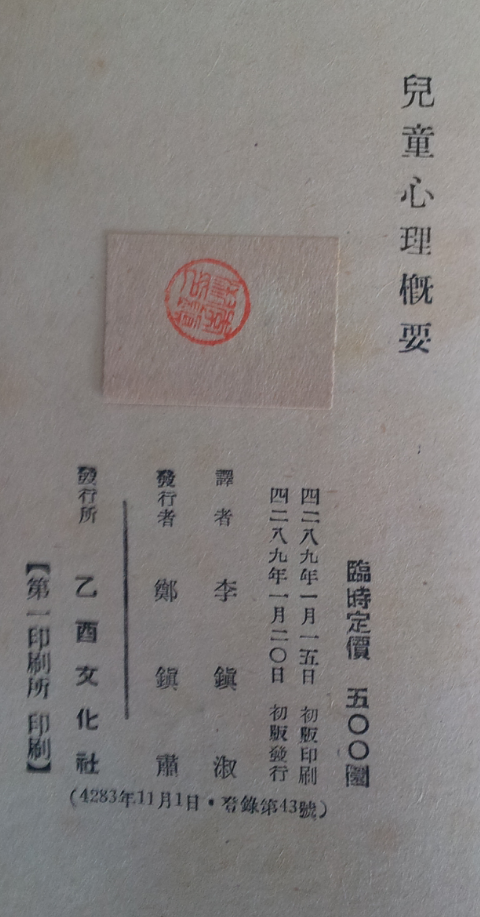 兒童心理槪要
臨時定價 五〇〇圜
四二八九年一月一五日 初版印刷
四二八九年一月二〇日 初版發行
譯者 李鎭淑
發行者 鄭鎭肅
發行所 乙酉文化社
【第一印刷所 印刷】
(4283年11月1日・登錄第43號)